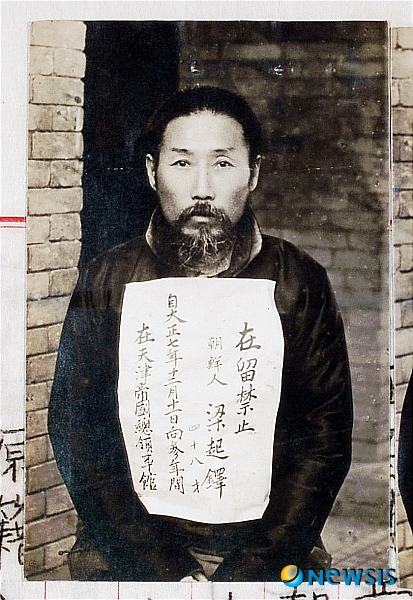 在留禁止
朝鮮人 梁起鐸
四十八才
自大正七年十二月十一日向参年間
在天津帝國總領事館
newsis